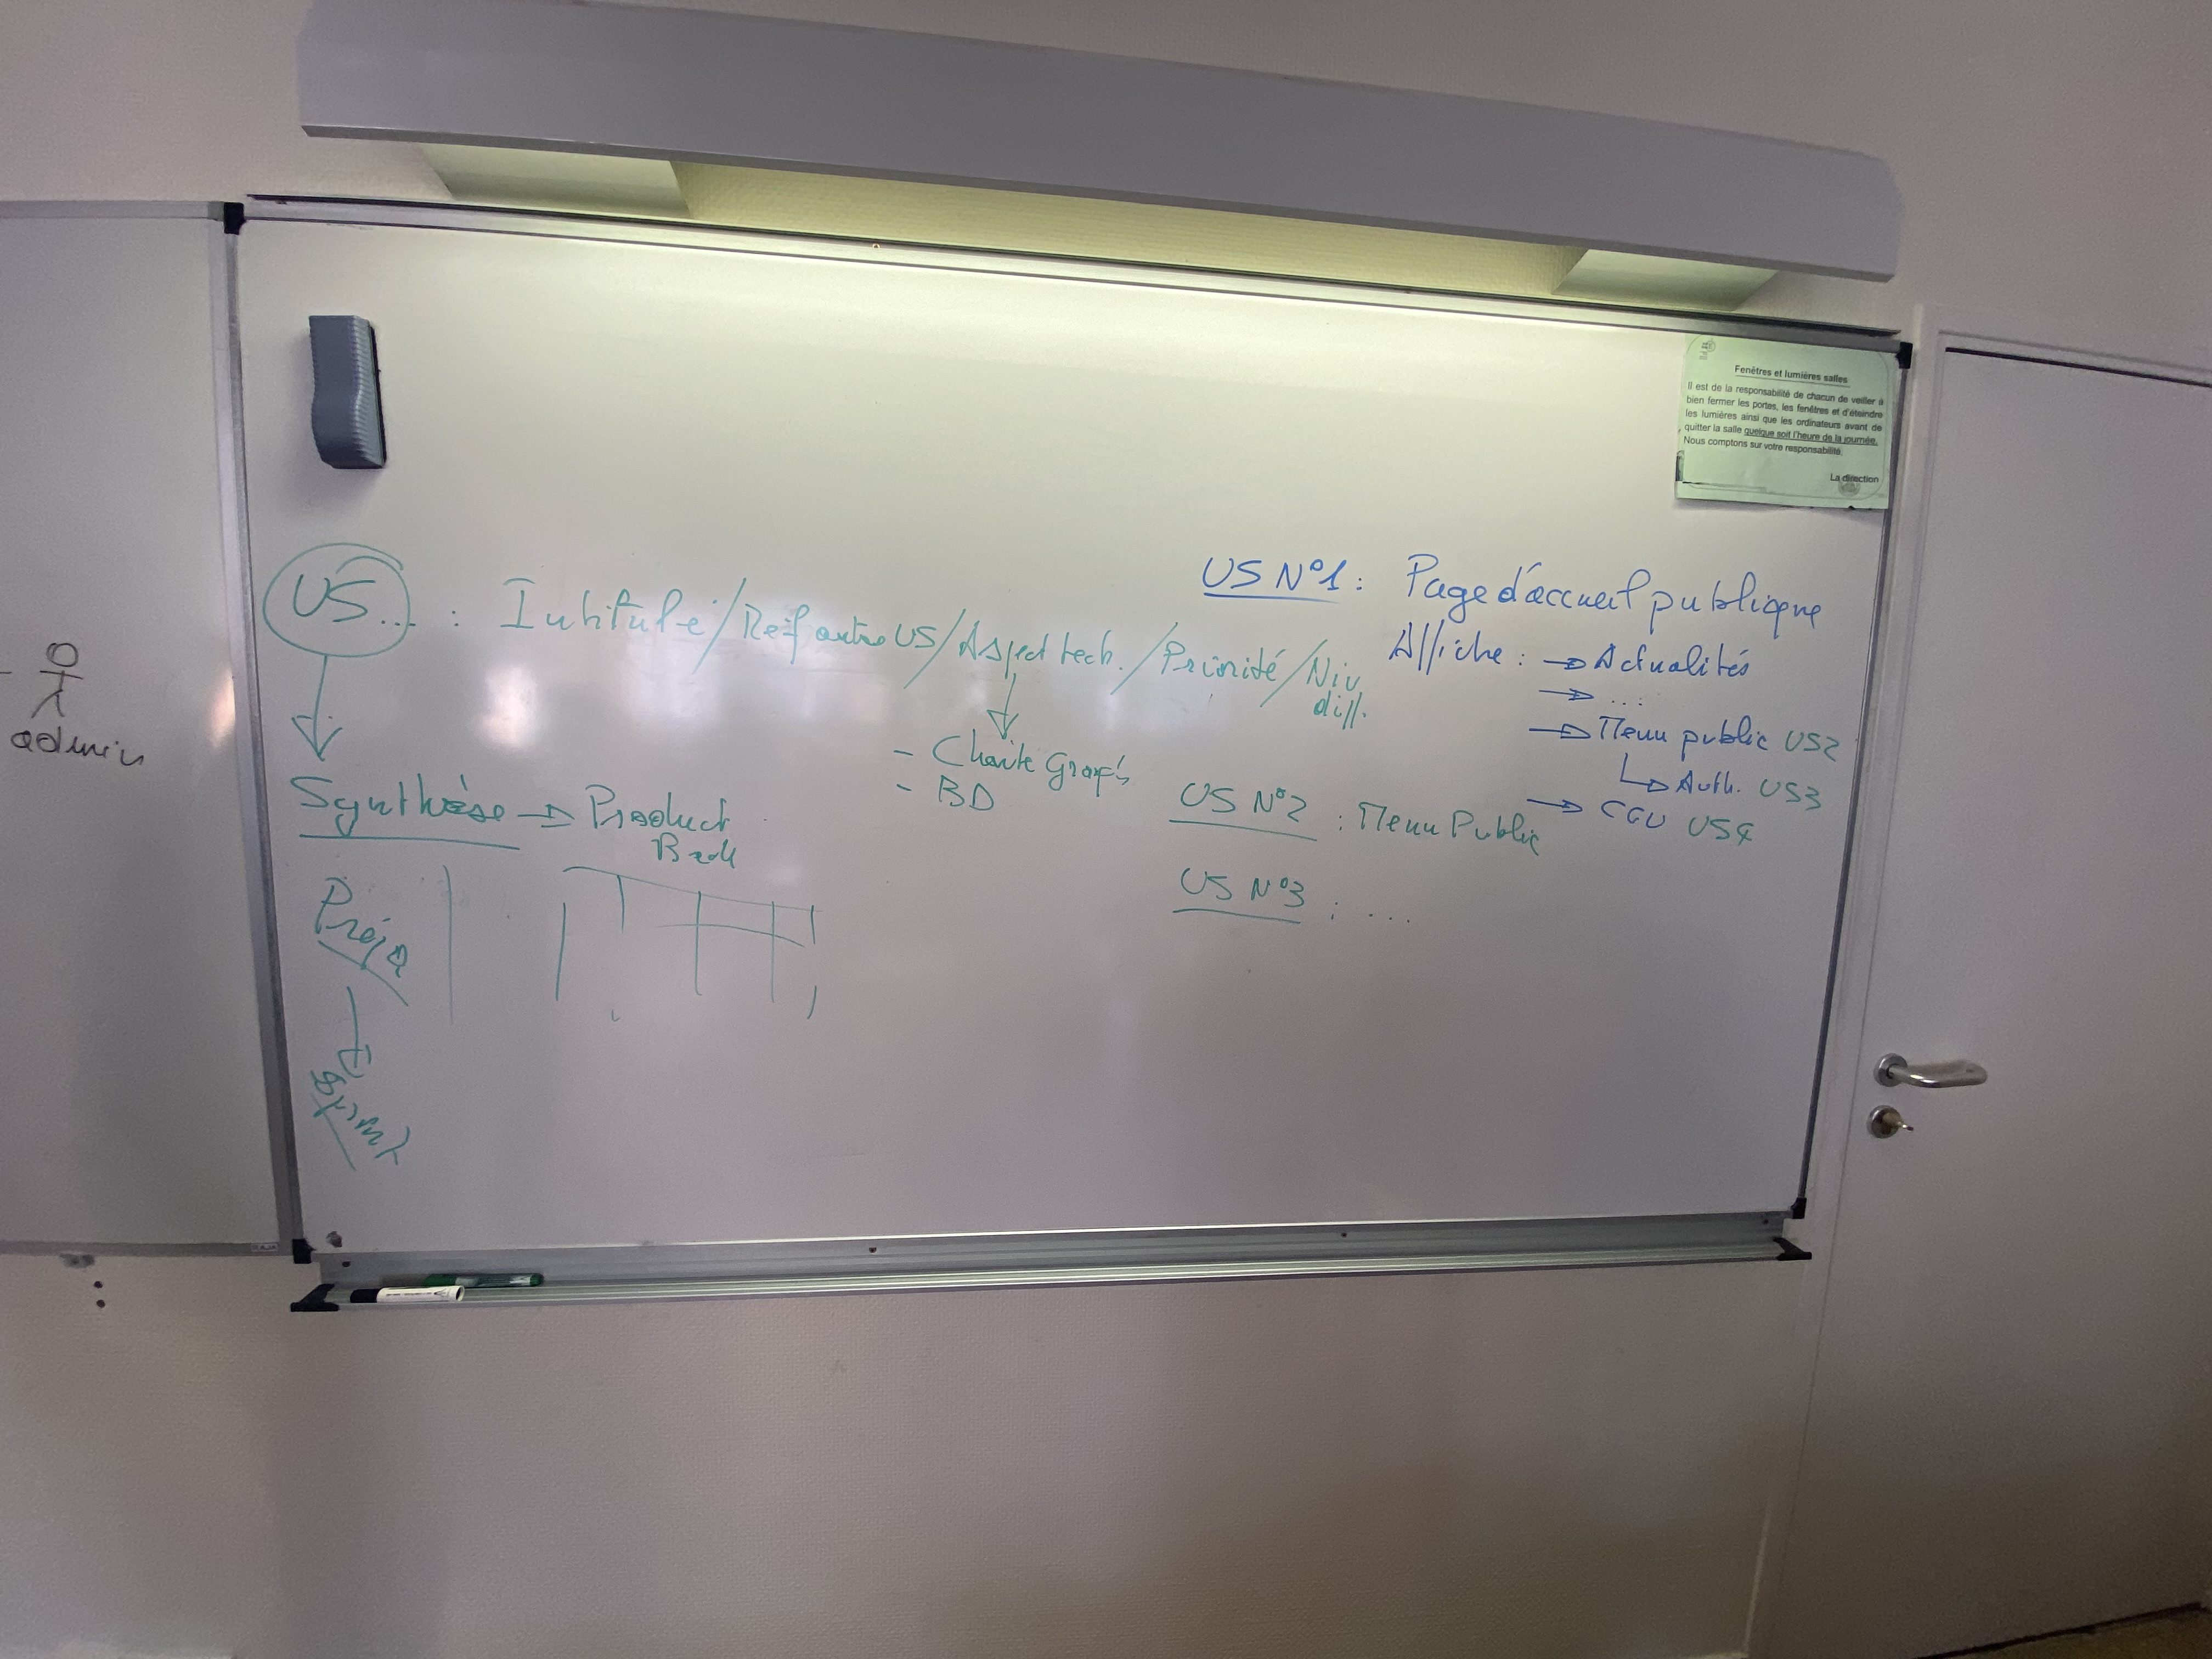 Fenêtres et lumières salles
Il est de la responsabilité de chacun de veiller à
bien fermer les portes, les fenêtres et d'éteindre
les lumières ainsi que les ordinateurs avant de
quitter la salle quelque soit l'heure de la journée.
Nous comptons sur votre responsabilité.
La direction
US... : Intitulé / Ref autre US / Aspect tech. / Priorité / Niv
diff.
- Charte Graph
- BD
Synthèse → Product
Back
Prépa
Sprint
US N°1 : Page d'accueil publique
Affiche : → Actualités
→ ...
→ Menu public US2
↳ Auth. US3
→ CGU US4
US N°2 : Menu Public
US N°3 : ...
admin